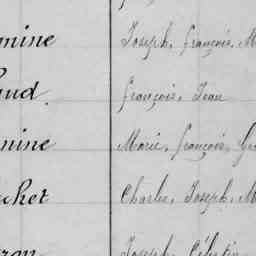 mine Joseph, françois, M
aud. françois, Jean
mine Marie, françois,
chet Charles, Joseph, M
Joseph, Célestin